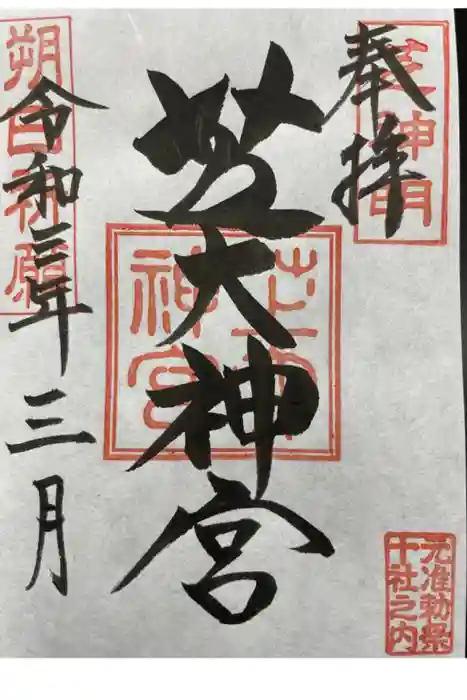 奉拝
芝神明
芝大神宮
神宮
令和三年三月
朔日祈願
元准勅祭
十社之内